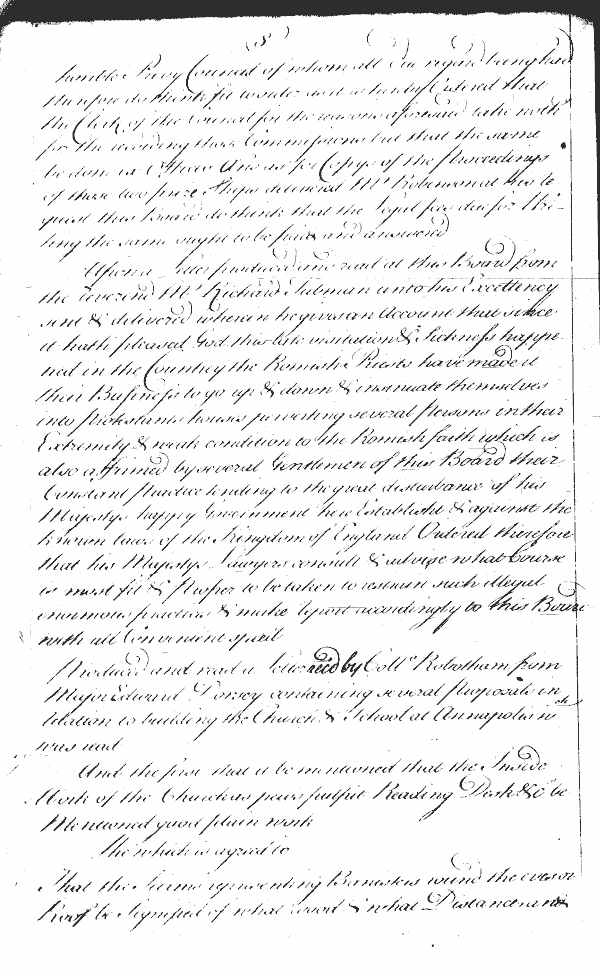 (8)
humble Privy Council of whom all due regard being had
therefore do think fit to order and it is hereby Ordered that
the Clerk of the Council for the reasons aforesaid take noth
for the recording those Commissions but that the same
be done Ex Officio And as for Copys of the Proceedings
of those two prize Ships delivered Mr Robinson at his re
quest this Board do think that the Legal fees due for Wri-
ting the same ought to be paid and answered
Upon a Letter produced and read at this Board from
the reverend Mr Richard Tubman unto his Excellency
sent & delivered wherein he gives an Account that since
it hath pleased God this late visitation & Sickness happe-
ned in the Country the Romish Priests have made it
their Business to go up & down & insinuate themselves
into Protestants houses perverting several Persons in their
Extremity & weak condition to the Romish faith which is
also affirmed by several Gentlemen of this Board their
Constant Practice tending to the great disturbance of his
Majestys happy Government here Establisht & against the
known laws of the Kingdom of England Ordered therefore
that his Majestys Lawyers consult & advise what Course
is most fit & Proper to be taken to restrain such illegal
enormous practices & make report accordingly to this Board
with all Convenient speed
Produced and read a Letter recd by Collo Robotham from
Major Edward Dorsey containing several Proposals in
relation to building the Church & School at Annapolis wch
was read
And the first that it be mentioned that the Inside
Work of the Church as pews pulpit Reading Desk &c be
Mentioned good plain work
The which is agreed to
That the Seems representing Banisters round the eves or
Roof be Signified of what wood & what Distance and